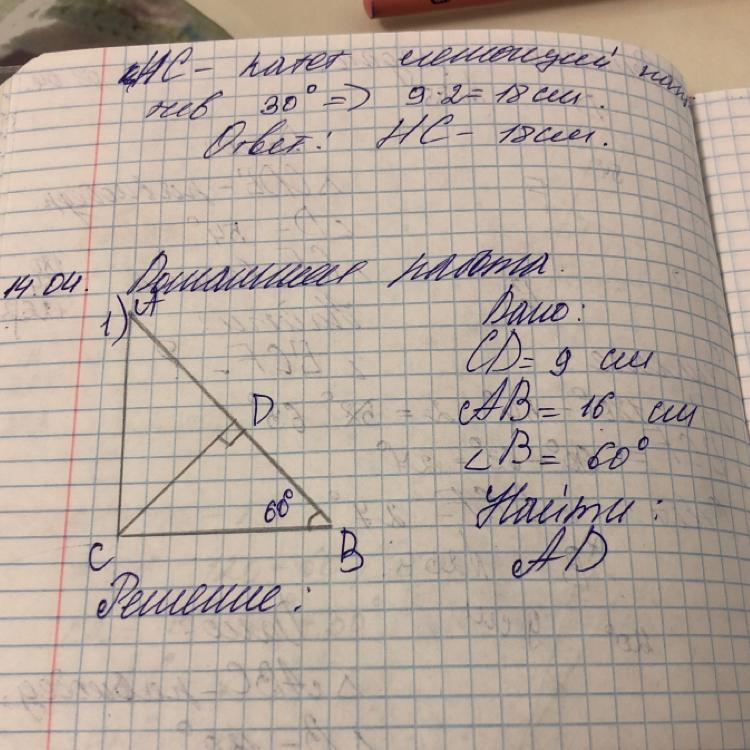 HC - катет лежащий на
тив 30° => 9·2 = 18 см.
Ответ: HC - 18 см.
14.04. Домашняя работа.
1) A
Дано:
CD = 9 см
D
AB = 16 см
∠B = 60°
60°
Найти:
C
B
AD
Решение: